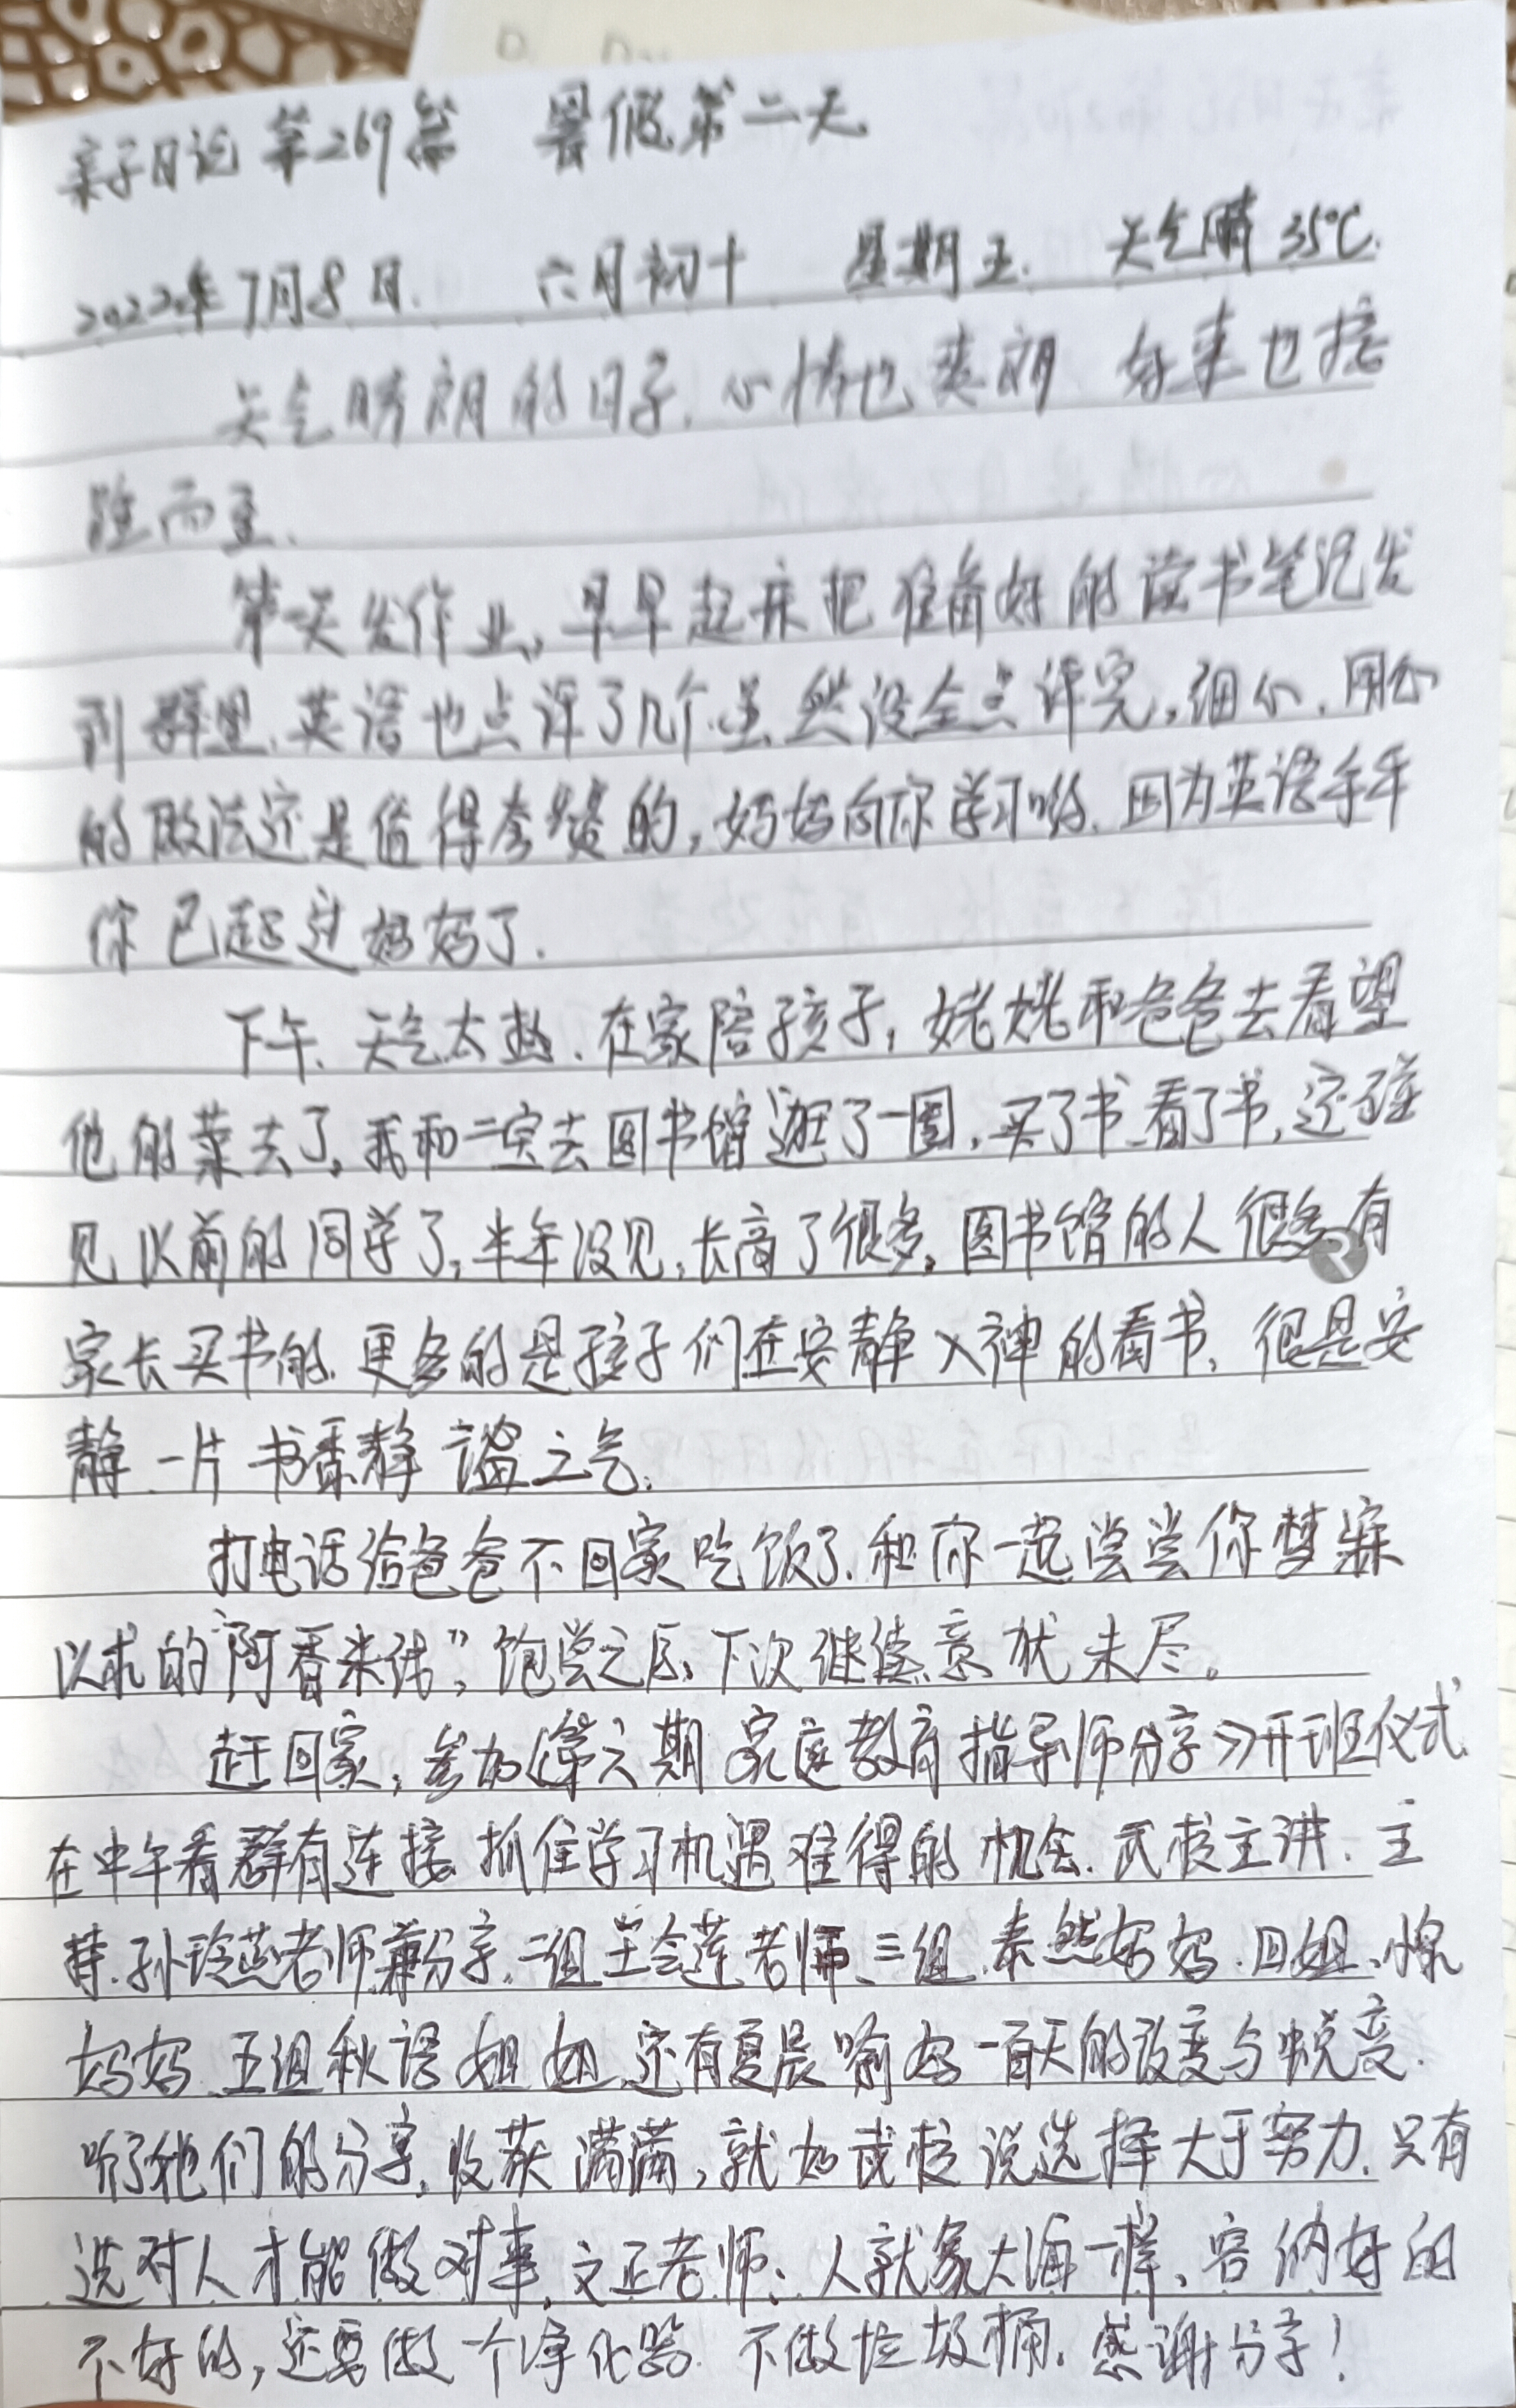 亲子日记 第269篇 暑假第二天
2022年7月8日. 六月初十 星期五. 天气晴 35℃.
天气晴朗的日子,心情也爽朗 好事也接
踵而至.
第一天发作业,早早起床把准备好的读书笔记发
到群里,英语也点评了几个,虽然没全点评完,细心、用心
的做法还是值得夸赞的,妈妈向你学习哟.因为英语手牛
你已超过妈妈了.
下午、天气太热.在家陪孩子,姥姥和爸爸去看望
他的菜去了,我和二宝去图书馆逛了一圈,买了书、看了书,还碰
见以前的同学了,半年没见,长高了很多。图书馆的人很多有
家长买书的.更多的是孩子们在安静入神的看书、很是安
静 一片书香静谧之气.
打电话给爸爸不回家吃饭了.和你一起尝尝你梦寐
以求的“阿香米线”,饱尝之后、下次继续意犹未尽。
赶回家,参加《第六期家庭教育指导师分享》开班仪式
在中午看群有连接 抓住学习机遇难得的机会.武校主讲.主
持.孙玲燕老师兼分享.二组王会莲老师、三组.泰然妈妈.四组、
妈妈、五组秋语姐姐,还有夏晨喻妈一百天的改变与蜕变.
听了他们的分享,收获满满,就如武校说选择大于努力.只有
选对人才能做对事,文正老师:人就象大海一样、容纳好的
不好的,还要做一个净化器.不做垃圾桶.感谢分享!